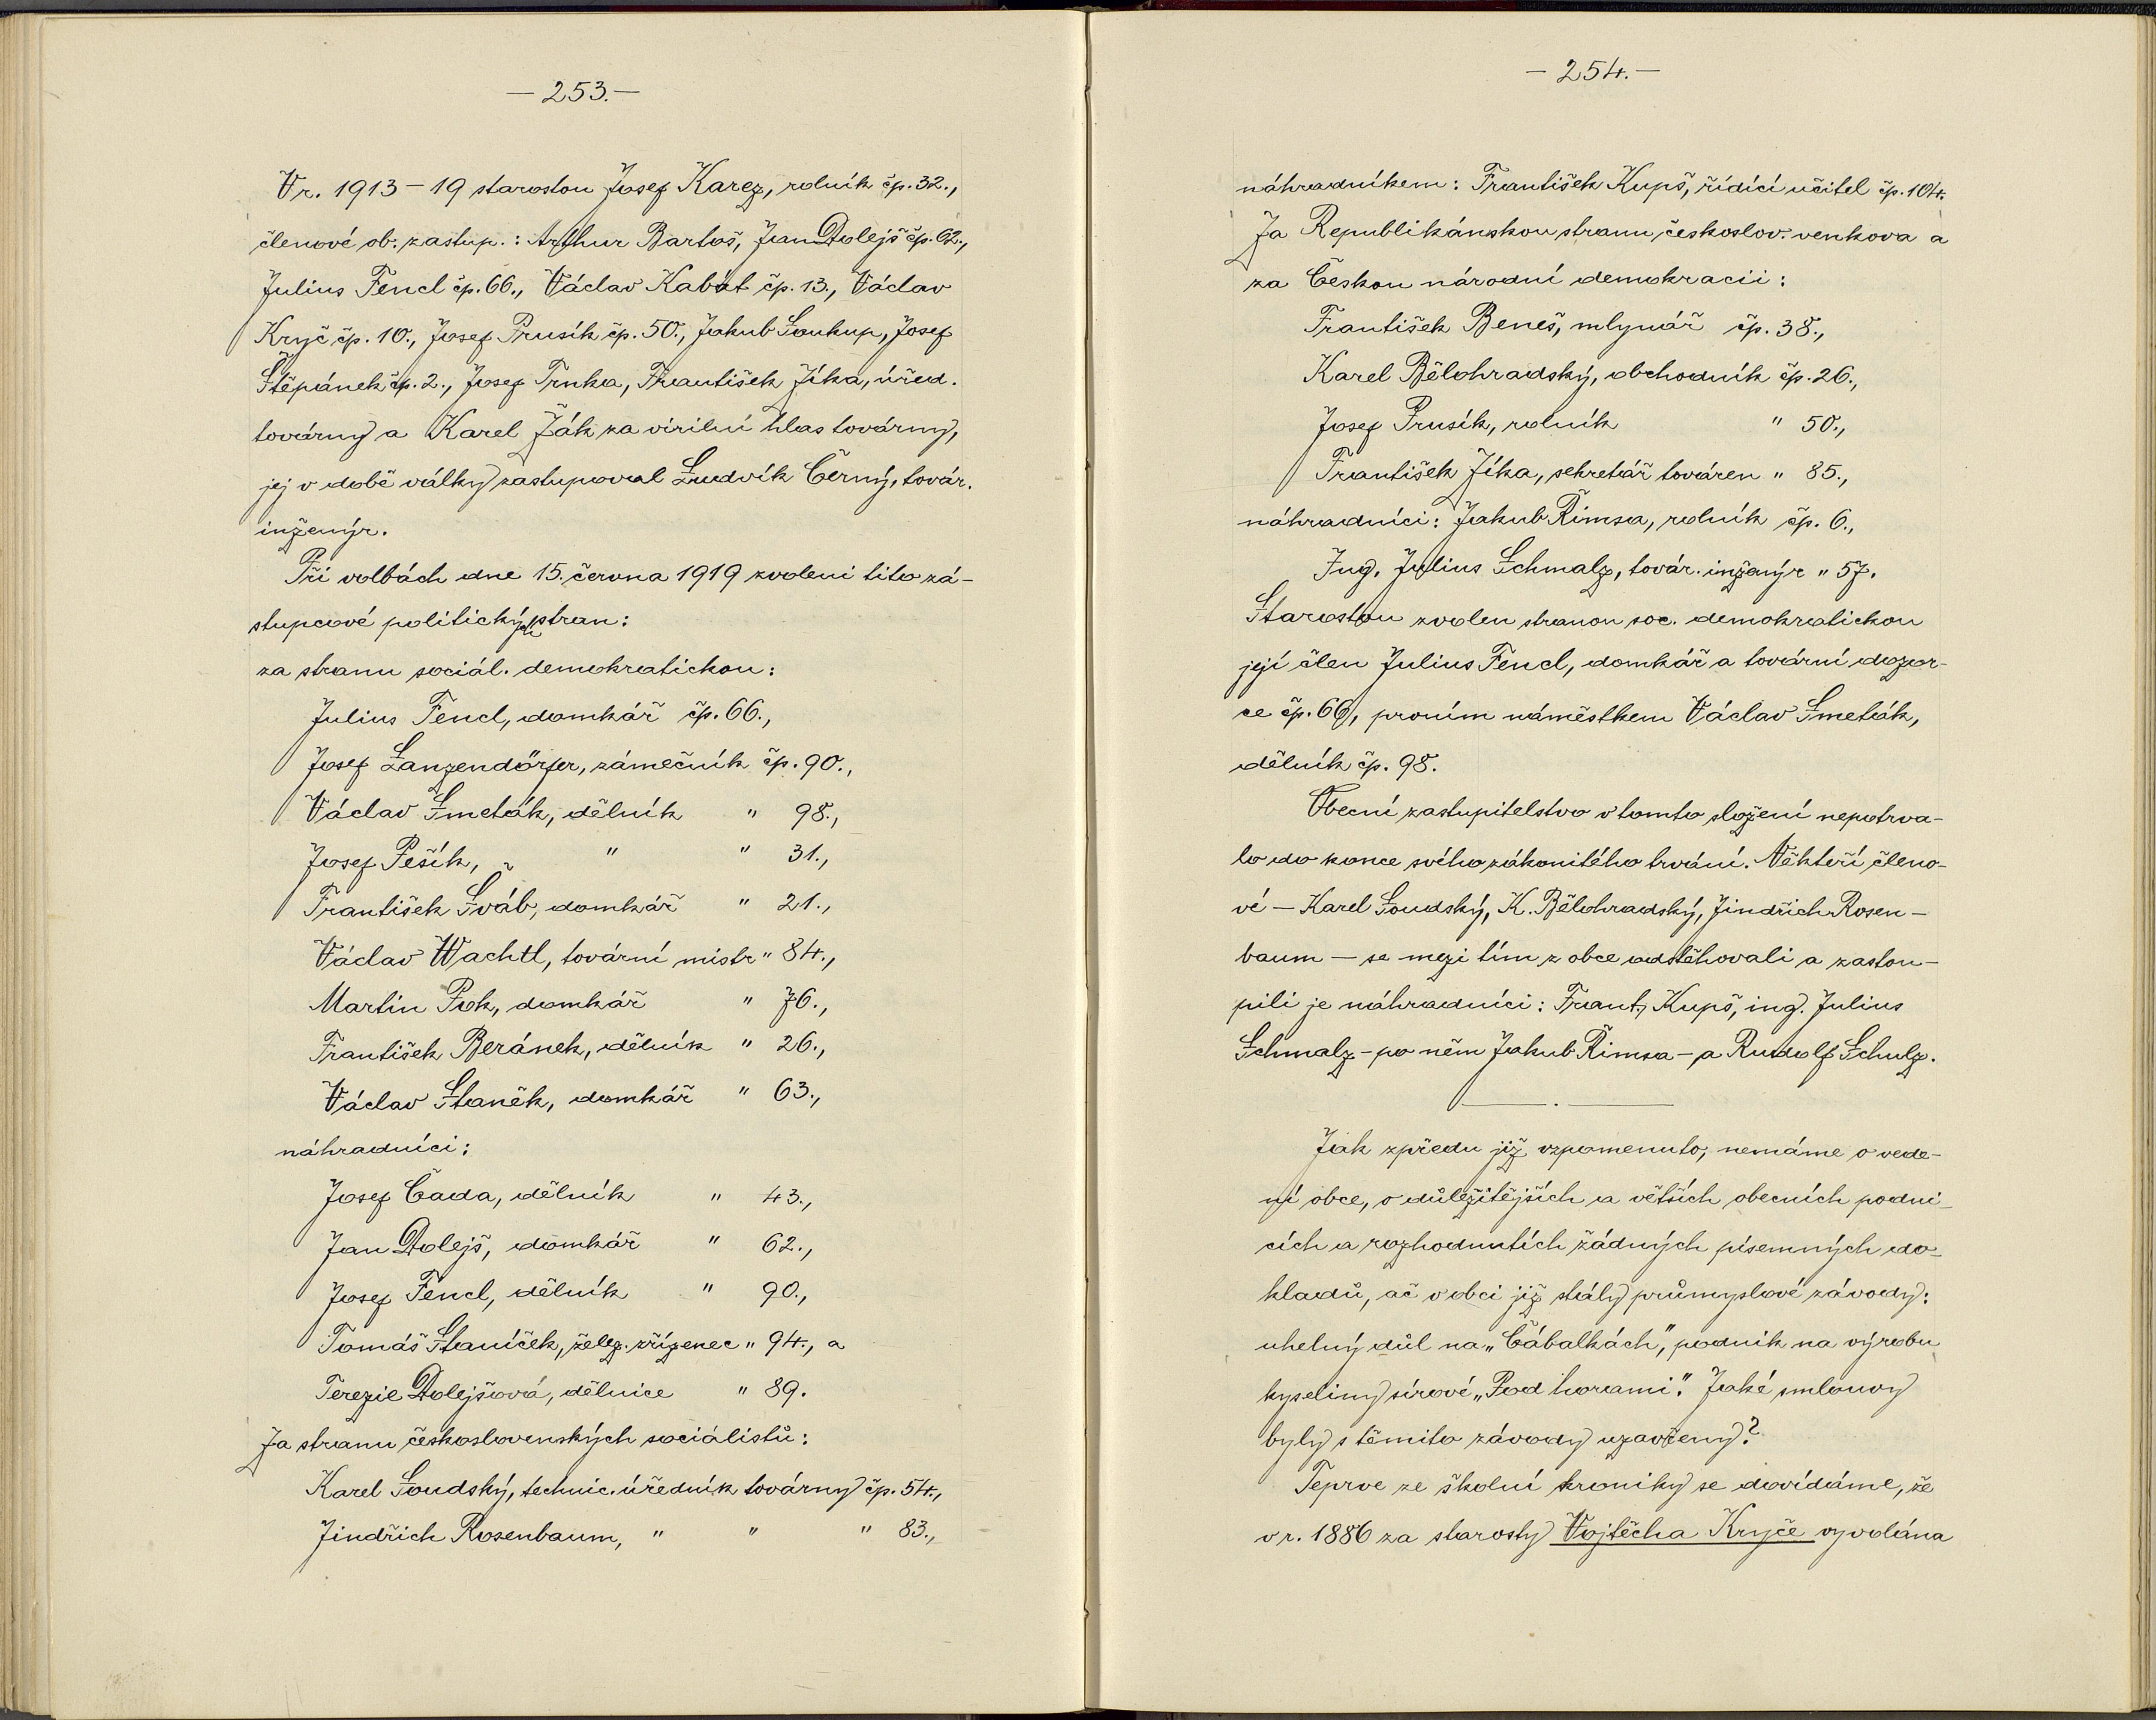 — 253. —
V r. 1913 – 19 starostou Josef Karez, rolník čp. 32.,
členové ob. zastup. : Arthur Bartoš, Jan Dolejš čp. 62.,
Julius Fencl čp. 66., Václav Kabát čp. 13., Václav
Kryč čp. 10., Josef Prusík čp. 50., Jakub Soukup, Josef
Štěpánek čp. 2., Josef Trnka, František Zíka, úřed.
továrny a Karel Žák za virilní hlas továrny,
jej v době války zastupoval Ludvík Černý, továr.
inženýr.
Při volbách dne 15. června 1919 zvoleni tito zá-
stupcové politických stran:
za stranu sociál. demokratickou:
Julius Fencl, domkář čp. 66.,
Josef Lanzendörfer, zámečník čp. 90.,
Václav Smeták, dělník " 98.,
Josef Pešík, " " 31.,
František Šváb, domkář " 21.,
Václav Wachtl, tovární mistr " 84.,
Martin Pok, domkář " 76.,
František Beránek, dělník " 26.,
Václav Staněk, domkář " 63.,
náhradníci:
Josef Čada, dělník " 43.,
Jan Dolejš, domkář " 62.,
Josef Fencl, dělník " 90.,
Tomáš Staníček, želez. zřízenec " 94., a
Terezie Dolejšová, dělnice " 89.
Za stranu československých socialistů:
Karel Soudský, technic. úředník továrny čp. 54.,
Jindřich Rosenbaum, " " " 83.,
— 254. —
náhradníkem: František Kupš, řídící učitel čp. 104.
Za Republikánskou stranu českoslov. venkova a
za Českou národní demokracii:
František Beneš, mlynář čp. 38.,
Karel Bělohradský, obchodník čp. 26.,
Josef Prusík, rolník " 50.,
František Zíka, sekretář továren " 85.,
náhradníci: Jakub Římsa, rolník čp. 6.,
Ing. Julius Schmalz, továr. inženýr " 57.
Starostou zvolen stranou soc. demokratickou
její člen Julius Fencl, domkář a tovární dozor-
ce čp. 66, prvním náměstkem Václav Smeták,
dělník čp. 98.
Obecní zastupitelstvo v tomto složení nepotrva-
lo do konce svého zákonitého trvání. Někteří členo-
vé – Karel Soudský, K. Bělohradský, Jindřich Rosen-
baum – se mezi tím z obce odstěhovali a zastou-
pili je náhradníci: Frant. Kupš, ing. Julius
Schmalz – po něm Jakub Římsa – a Rudolf Schulz.
Jak zpředu již vzpomenuto, nemáme o vede-
ní obce, o důležitějších a větších obecních podni-
cích a rozhodnutích žádných písemných do-
kladů, ač v obci již stály průmyslové závody:
uhelný důl na „Čábalkách", podnik na výrobu
kyseliny sírové „Pod horami". Jaké smlouvy
byly s těmito závody uzavřeny?
Teprve ze školní kroniky se dovídáme, že
v r. 1886 za starosty Vojtěcha Kryče vyvolána